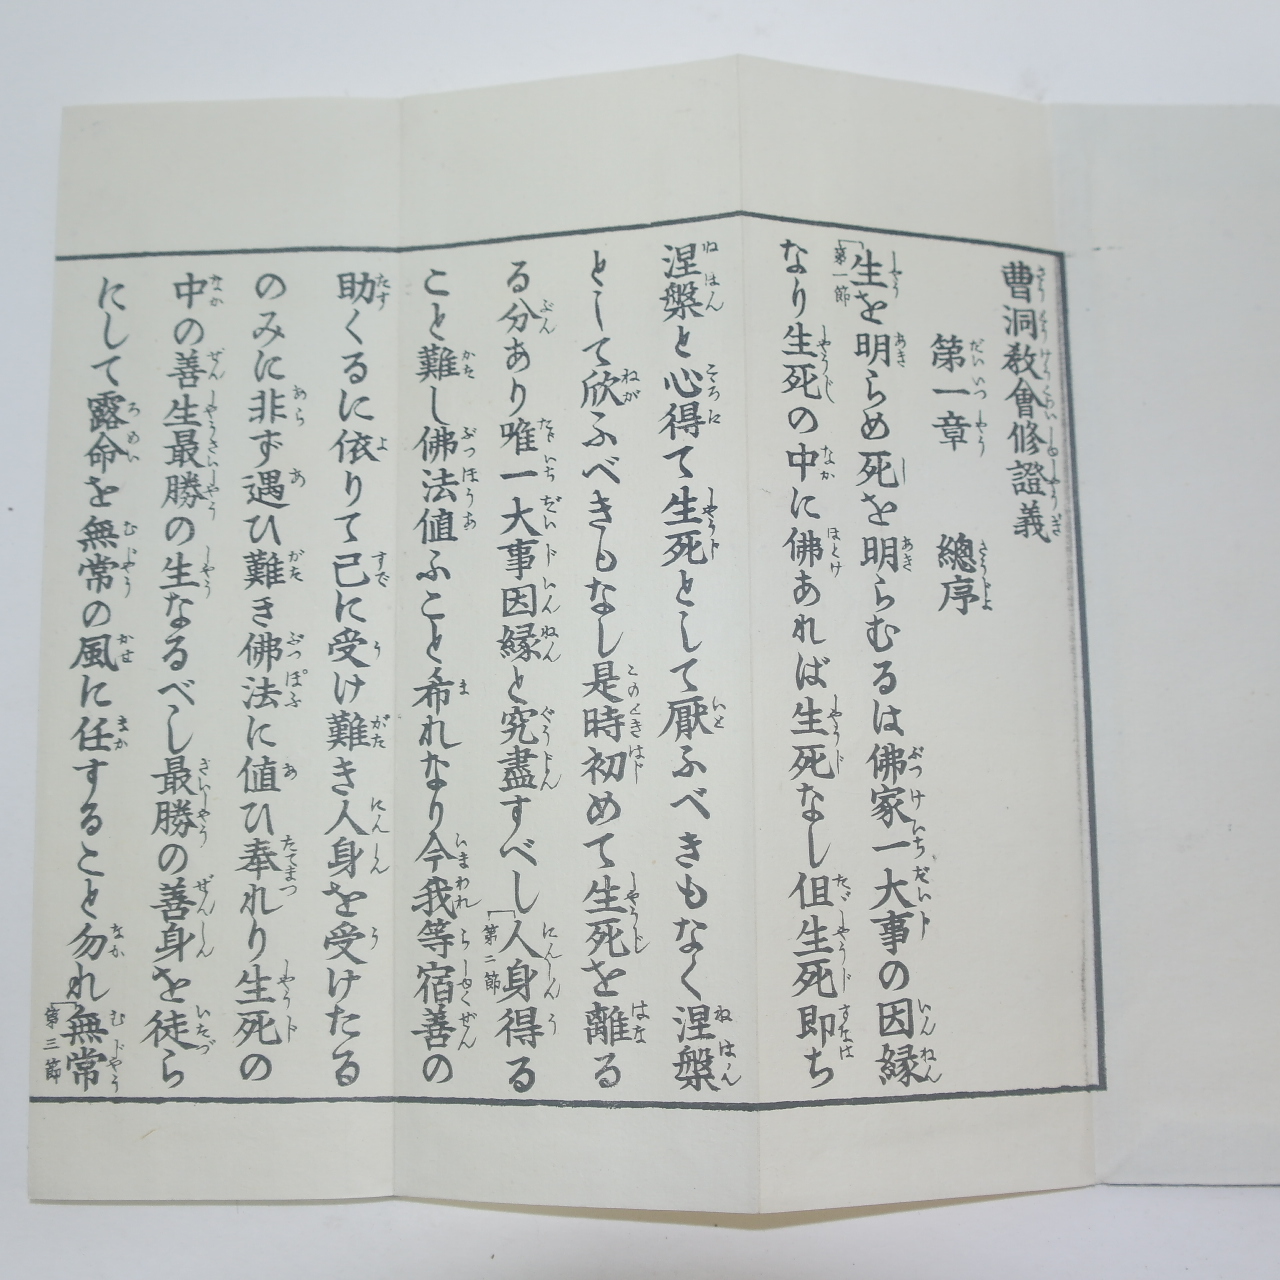 曹洞敎會修證義
第一章 總序
生を明らめ死を明らむるは佛家一大事の因縁
第一節
なり生死の中に佛あれば生死なし但生死即ち
涅槃と心得て生死として厭ふべきもなく涅槃
として欣ふべきもなし是時初めて生死を離る
る分あり唯一大事因縁と究盡すべし人身得る
第二節
こと難し佛法値ふこと希れなり今我等宿善の
助くるに依りて已に受け難き人身を受けたる
のみに非ず遇ひ難き佛法に値ひ奉れり生死の
中の善生最勝の生なるべし最勝の善身を徒ら
にして露命を無常の風に任すること勿れ無常
第三節